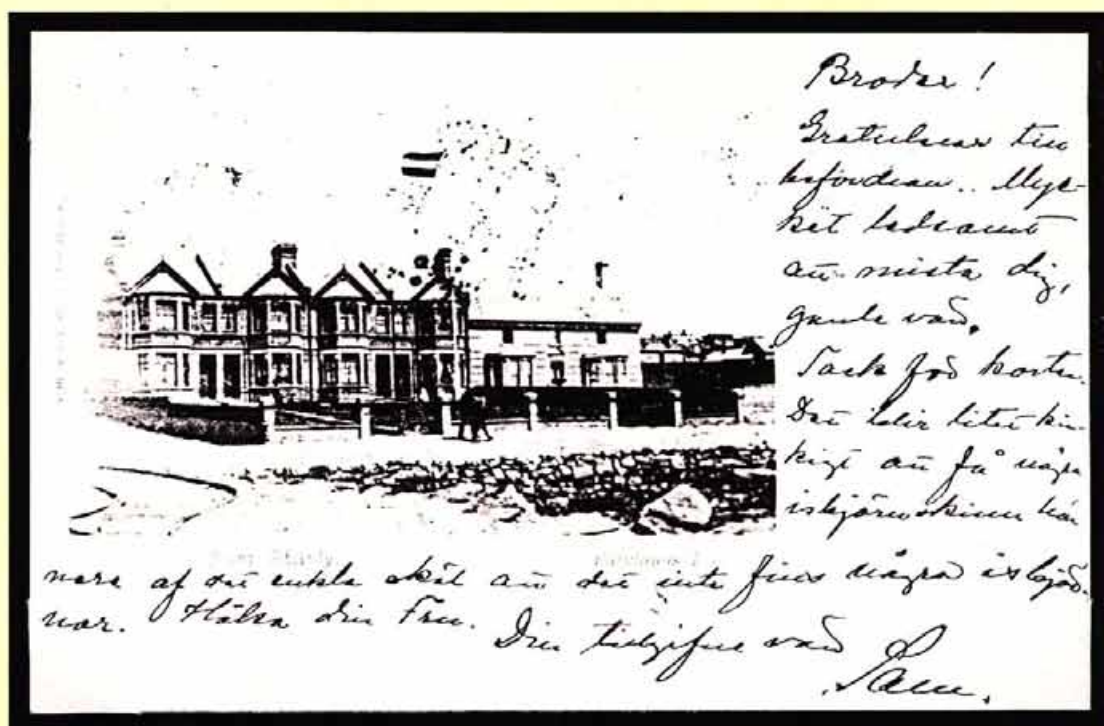 Broder!
Gratulerar till
befordran. Myc-
ket ledsamt
att mista dig,
gamle vän.
Tack för korten.
Det blir litet kin-
kigt att få några
isbjörnskinn här
nere af det enkla skäl att det inte fins några isbjör-
nar. Hälsa din Fru.
Din tillgifne vän
Sam.